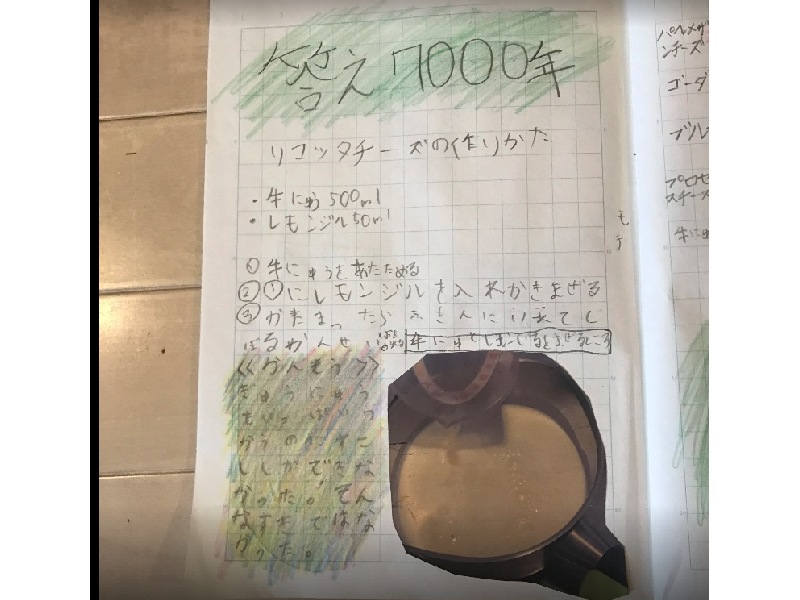 答え7000年
リコッタチーズの作りかた
・牛にゅう500ml
・レモンジル50ml
①牛にゅうをあたためる
②①にレモンジルを入れかきまぜる
③かたまったらふきんにいれてし
ぼるかんせい
<かんそう>
ぎゅうにゅう
をいっぱいつ
かうのにすこ
ししかできな
かった。そん
なすきではな
かった。
パルメザ
ンチーズ
ゴーダ
ブル
プロセ
スチーズ
牛にゅ
モ